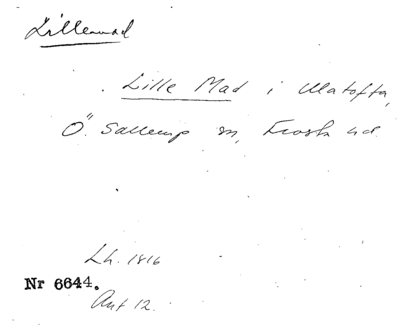 Lillemad
Lille Mad i Ulatofta,
Ö. Sallerup sn, Frosta hd.
Lh. 1816
Nr 6644.
Ant 12.